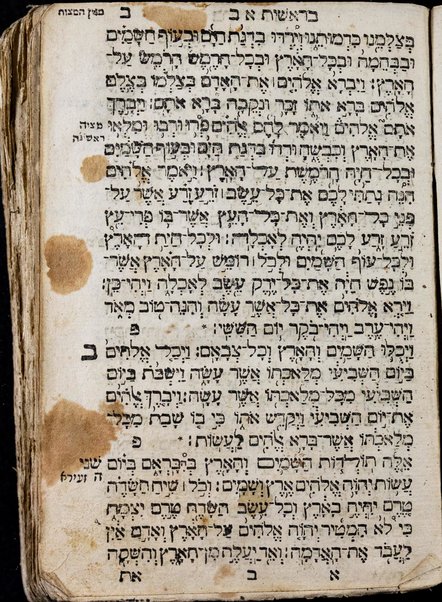 בראשית א ב
ב
מנין המצות
בְּצַלְמֵנוּ כִּדְמוּתֵנוּ וְיִרְדּוּ בִדְגַת הַיָּם וּבְעוֹף הַשָּׁמַיִם
וּבַבְּהֵמָה וּבְכָל־הָאָרֶץ וּבְכָל־הָרֶמֶשׂ הָרֹמֵשׂ עַל־
הָאָרֶץ: וַיִּבְרָא אֱלֹהִים ׀ אֶת־הָאָדָם בְּצַלְמוֹ בְּצֶלֶם
אֱלֹהִים בָּרָא אֹתוֹ זָכָר וּנְקֵבָה בָּרָא אֹתָם: וַיְבָרֶךְ
אֹתָם אֱלֹהִים וַיֹּאמֶר לָהֶם אֱלֹהִים פְּרוּ וּרְבוּ וּמִלְאוּ
אֶת־הָאָרֶץ וְכִבְשֻׁהָ וּרְדוּ בִּדְגַת הַיָּם וּבְעוֹף הַשָּׁמַיִם
וּבְכָל־חַיָּה הָרֹמֶשֶׂת עַל־הָאָרֶץ: וַיֹּאמֶר אֱלֹהִים
הִנֵּה נָתַתִּי לָכֶם אֶת־כָּל־עֵשֶׂב ׀ זֹרֵעַ זֶרַע אֲשֶׁר עַל־
פְּנֵי כָל־הָאָרֶץ וְאֶת־כָּל־הָעֵץ אֲשֶׁר־בּוֹ פְרִי־עֵץ
זֹרֵעַ זָרַע לָכֶם יִהְיֶה לְאָכְלָה: וּלְכָל־חַיַּת הָאָרֶץ
וּלְכָל־עוֹף הַשָּׁמַיִם וּלְכֹל ׀ רוֹמֵשׂ עַל־הָאָרֶץ אֲשֶׁר־
בּוֹ נֶפֶשׁ חַיָּה אֶת־כָּל־יֶרֶק עֵשֶׂב לְאָכְלָה וַיְהִי־כֵן:
וַיַּרְא אֱלֹהִים אֶת־כָּל־אֲשֶׁר עָשָׂה וְהִנֵּה־טוֹב מְאֹד
וַיְהִי־עֶרֶב וַיְהִי־בֹקֶר יוֹם הַשִּׁשִּׁי: פ
ב
וַיְכֻלּוּ הַשָּׁמַיִם וְהָאָרֶץ וְכָל־צְבָאָם: וַיְכַל אֱלֹהִים
בַּיּוֹם הַשְּׁבִיעִי מְלַאכְתּוֹ אֲשֶׁר עָשָׂה וַיִּשְׁבֹּת בַּיּוֹם
הַשְּׁבִיעִי מִכָּל־מְלַאכְתּוֹ אֲשֶׁר עָשָׂה: וַיְבָרֶךְ אֱלֹהִים
אֶת־יוֹם הַשְּׁבִיעִי וַיְקַדֵּשׁ אֹתוֹ כִּי בוֹ שָׁבַת מִכָּל־
מְלַאכְתּוֹ אֲשֶׁר־בָּרָא אֱלֹהִים לַעֲשׂוֹת: פ
שני
אֵלֶּה תוֹלְדוֹת הַשָּׁמַיִם וְהָאָרֶץ בְּהִבָּרְאָם בְּיוֹם
ה זעירא
עֲשׂוֹת יְהוָה אֱלֹהִים אֶרֶץ וְשָׁמָיִם: וְכֹל ׀ שִׂיחַ הַשָּׂדֶה
טֶרֶם יִהְיֶה בָאָרֶץ וְכָל־עֵשֶׂב הַשָּׂדֶה טֶרֶם יִצְמָח
כִּי לֹא הִמְטִיר יְהוָה אֱלֹהִים עַל־הָאָרֶץ וְאָדָם אַיִן
לַעֲבֹד אֶת־הָאֲדָמָה: וְאֵד יַעֲלֶה מִן־הָאָרֶץ וְהִשְׁקָה
א ב את